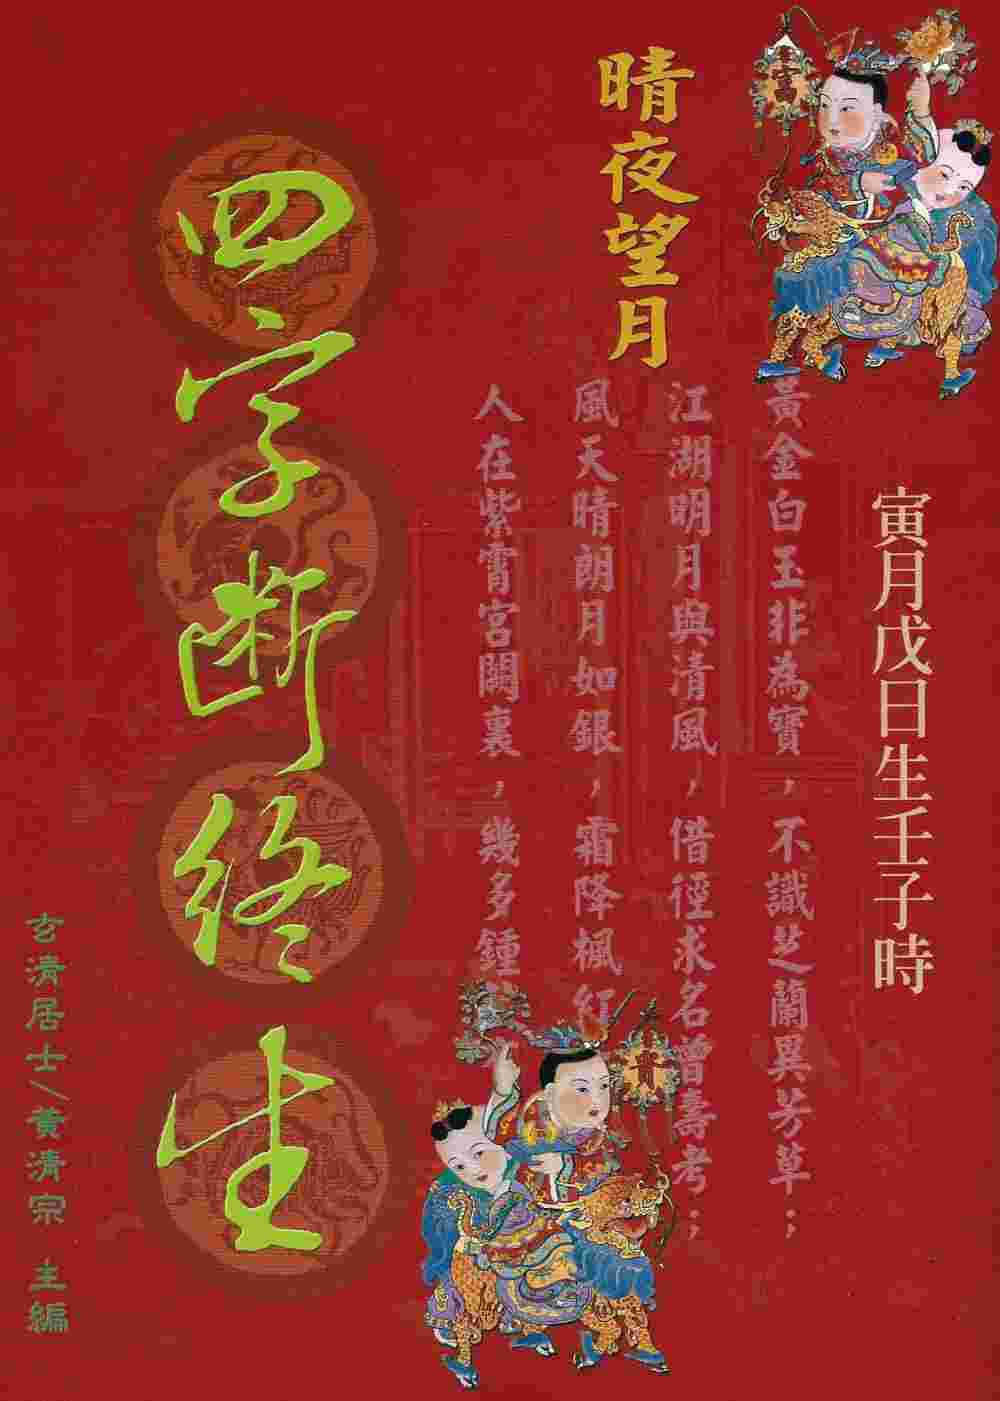 富
寅月戊日生壬子時
晴夜望月
黃金白玉非為寶，不識芝蘭異芳草；
江湖明月與清風，借徑求名曾壽考；
風天晴朗月如銀，霜降楓紅
人在紫霄宮闕裏，幾多鍾
貴
四字斷終生
玄清居士／黃清宗 主編